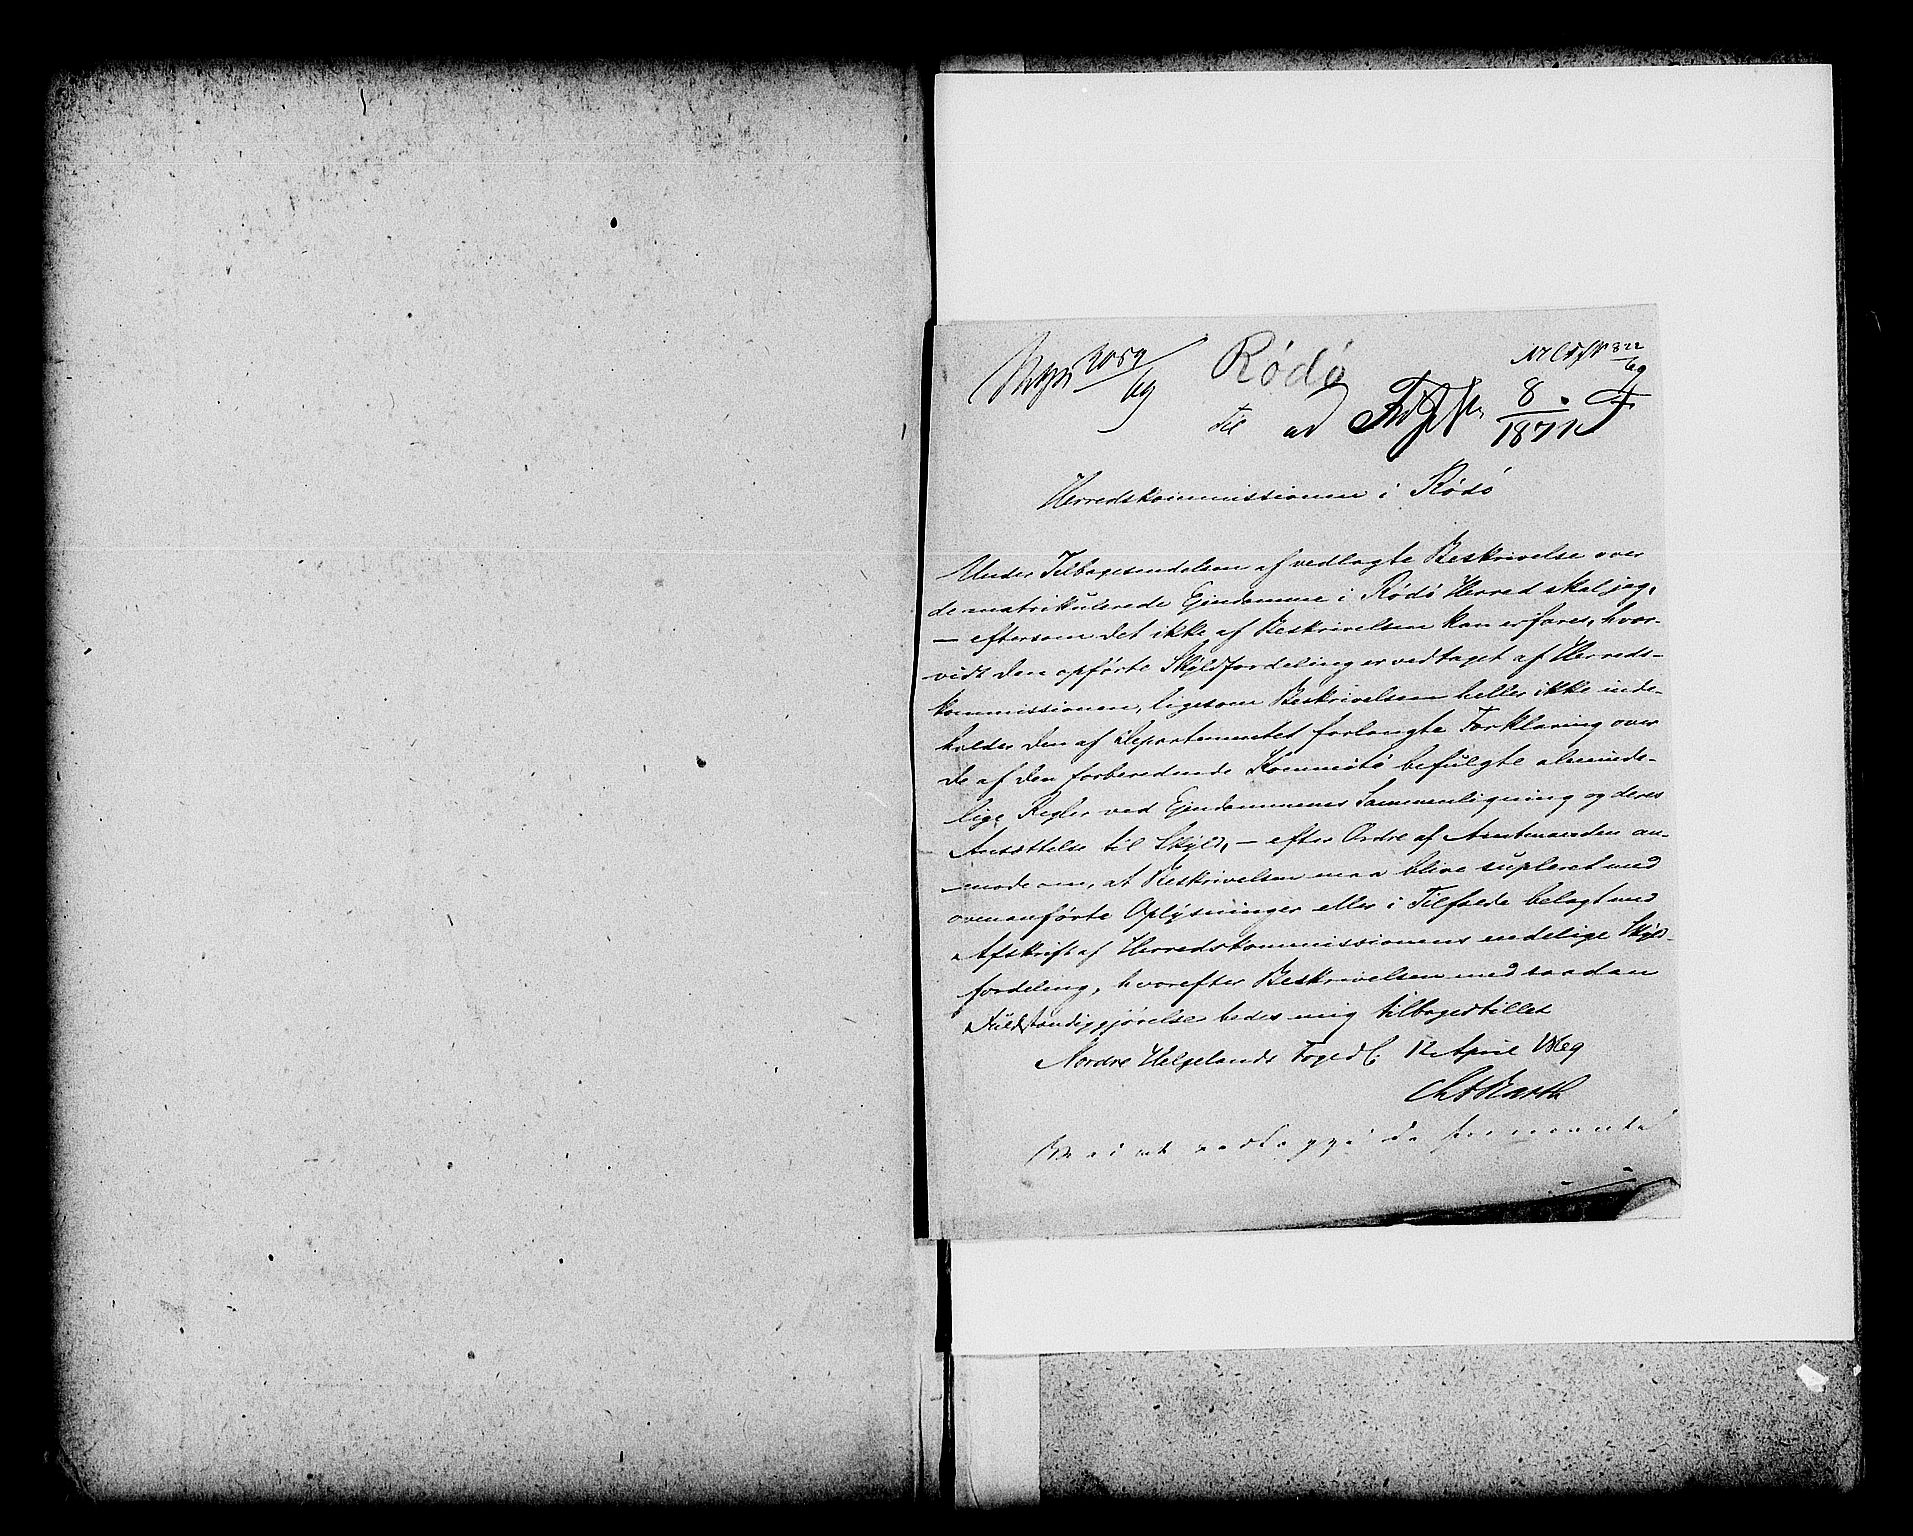 2059/69 Rödö 322/69
Til ad 8/1871
Herredskommissionen i Rödö
Under Tilbagesendelsen af vedlagte Beskrivelse over
de matrikulerede Ejendomme i Rödö Herred skal jeg,
— eftersom det ikke af Beskrivelsen kan erfares, hvor-
vidt den opförte Skyldfordeling er vedtaget af Herreds-
kommissionen, ligesom Beskrivelsen heller ikke inde-
holder den af Departementet forlangte Forklaring over
de af den forberedende Kommité befulgte alminde-
lige Regler ved Ejendommenes Sammenligning og deres
Ansættelse til Skyld, — efter Ordre af Amtmanden an-
mode om, at Beskrivelsen maa blive supleret med
ovenanförte Oplysninger eller i Tilfælde belagt med
Afskrift af Herredskommissionens endelige Skyld-
fordeling, hvorefter Beskrivelsen med saadan
Fuldstændiggjörelse bedes mig tilbagestillet
Nordre Helgelands Foged 12 April 1869
Barth